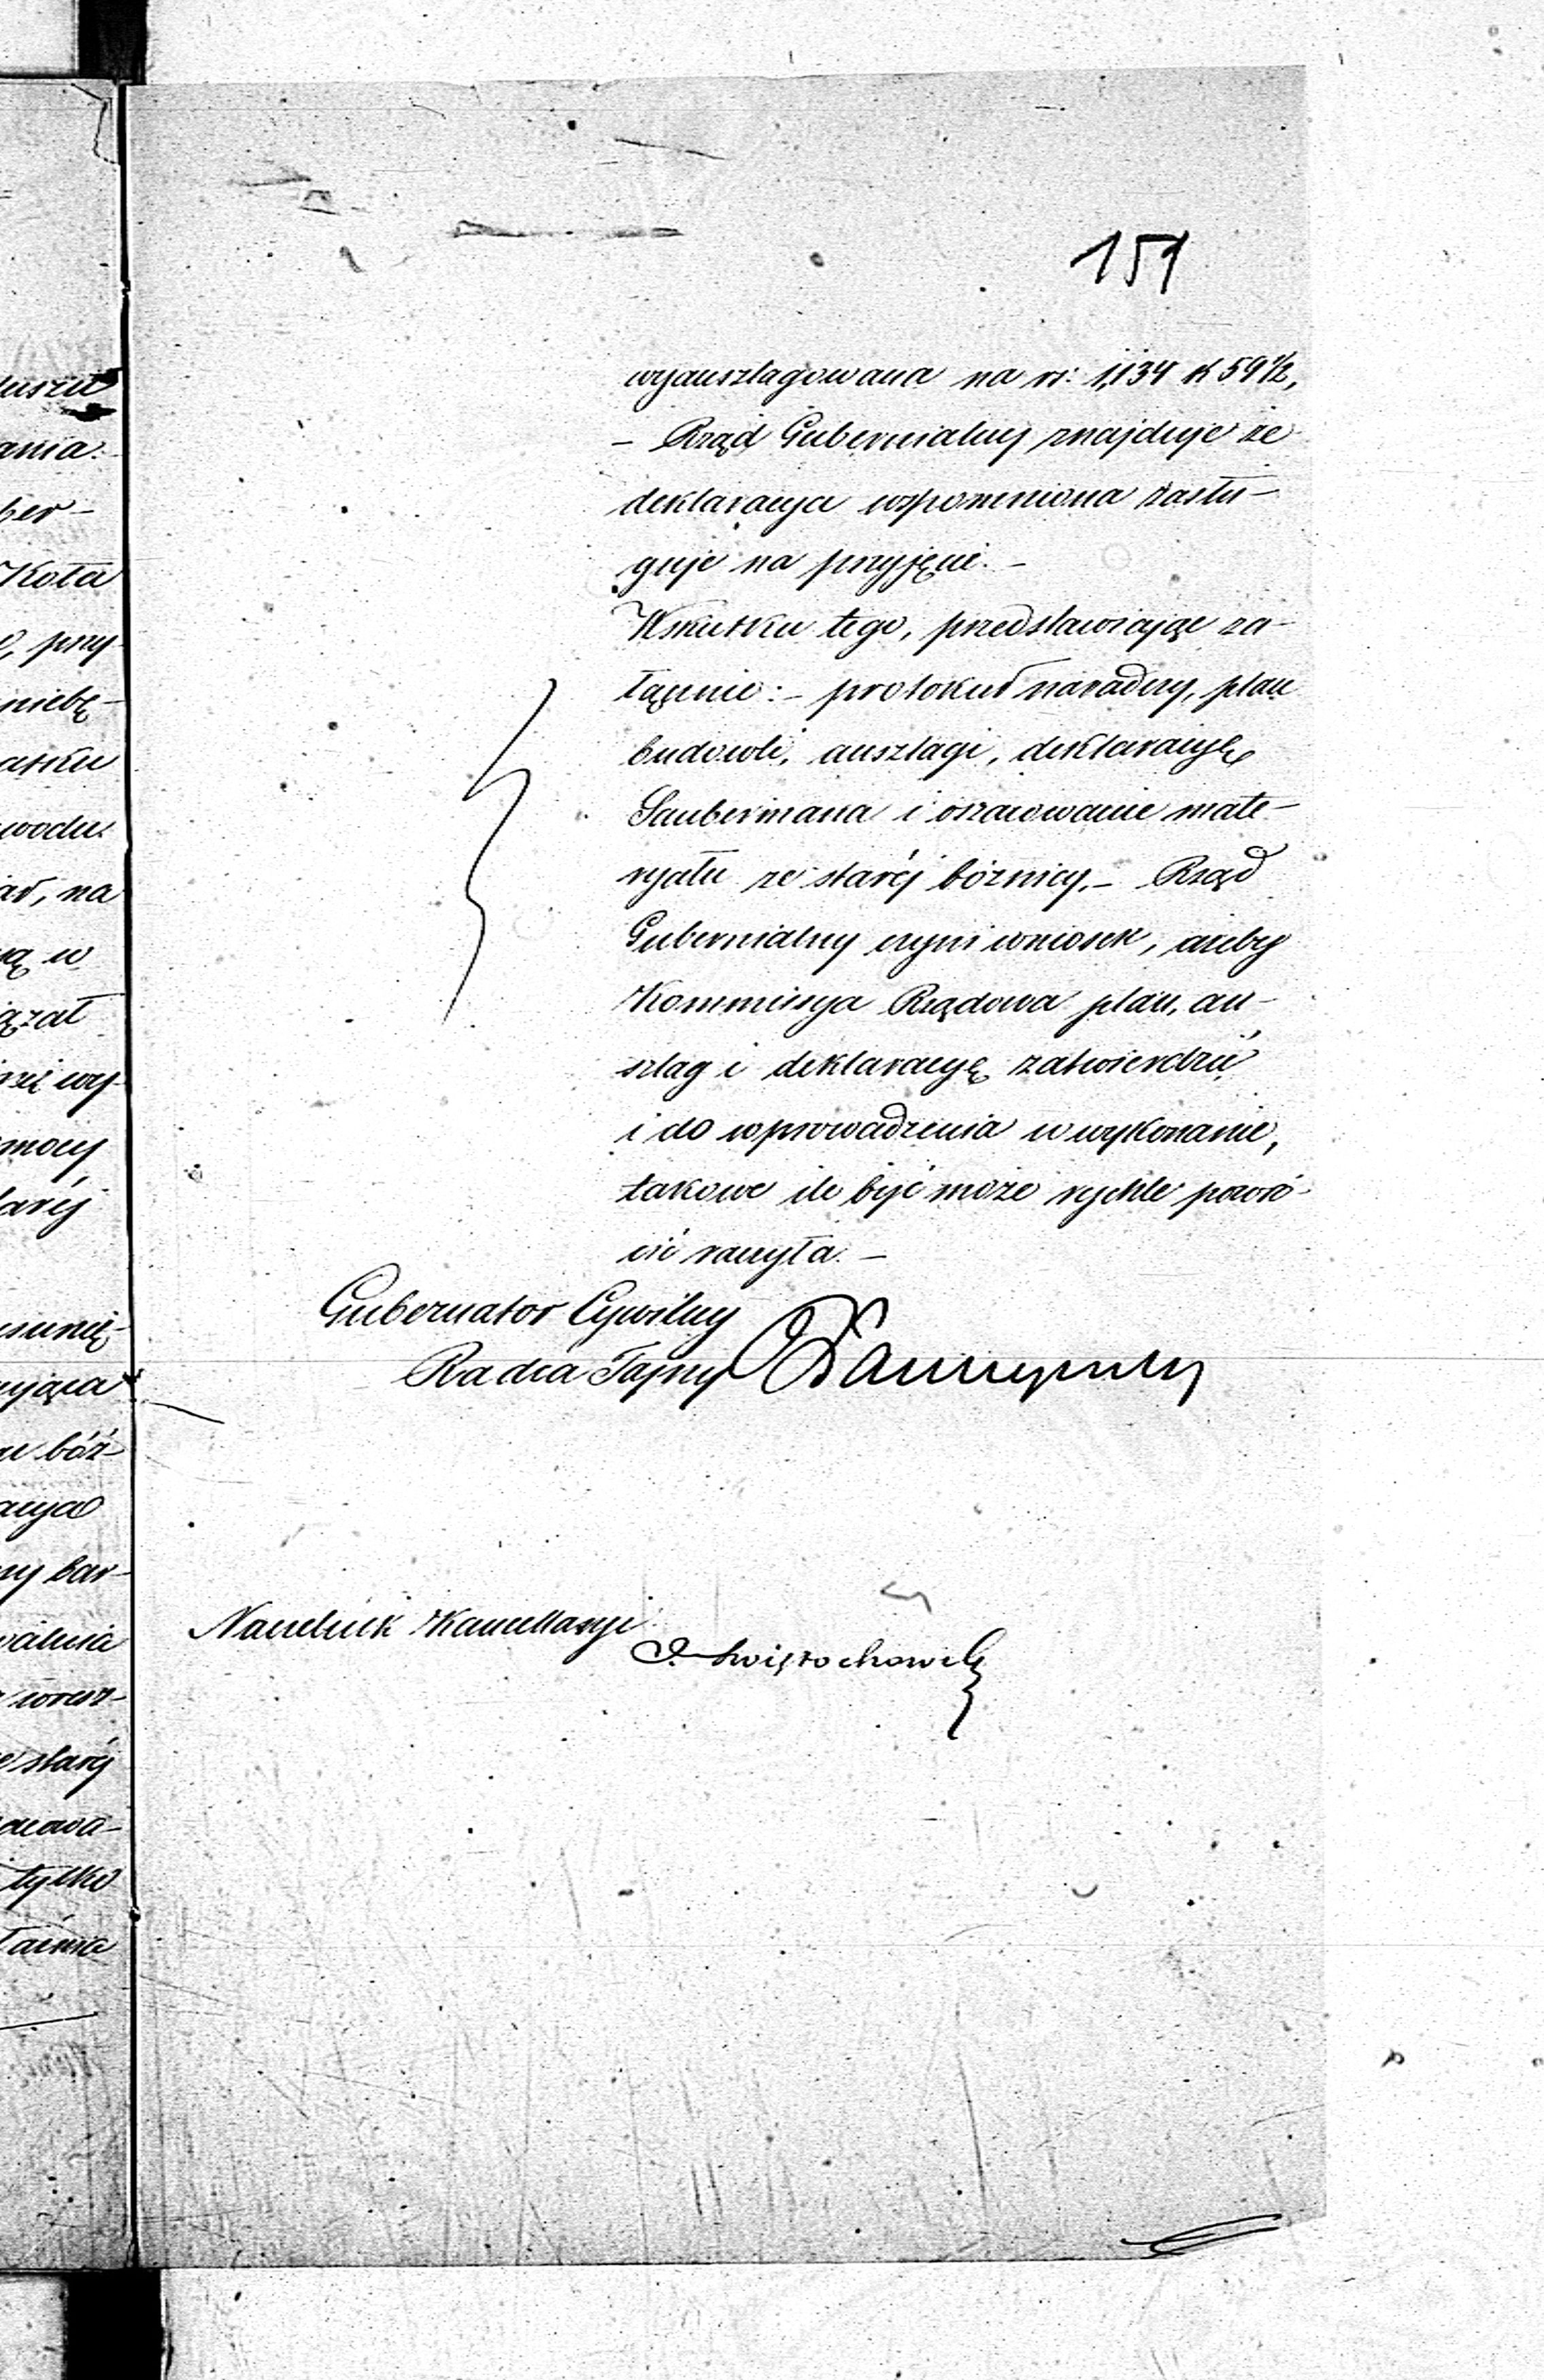 151
wyanszlagowana na rs: 1,134 k 59 1/2,
– Rząd Gubernialny znajduje że
deklaracya wspomniona zasłu-
guje na przyjęcie. –
W skutku tego, przedstawiając za-
łącznie: – protokuł naradczy, plan
budowli, anszlagi, deklaracyę
Saubermana i oszacowanie mate-
ryału ze starej bóżnicy, – Rząd
Gubernialny czyni wniosek, ażeby
Kommissya Rządowa plan, an-
szlag i deklaracyę zatwierdzić
i do wprowadzenia w wykonanie,
takowe ile być może rychle powró-
cić raczyła. –
Gubernator Cywilny
Radca Tajny
Naczelnik Kancellaryi
uszu
ania.
ber-
Koła
przy-
niebę-
atku
wodu
na
w
ązał
wy-
mocy
arej
bóż-
bar-
starej
tylko